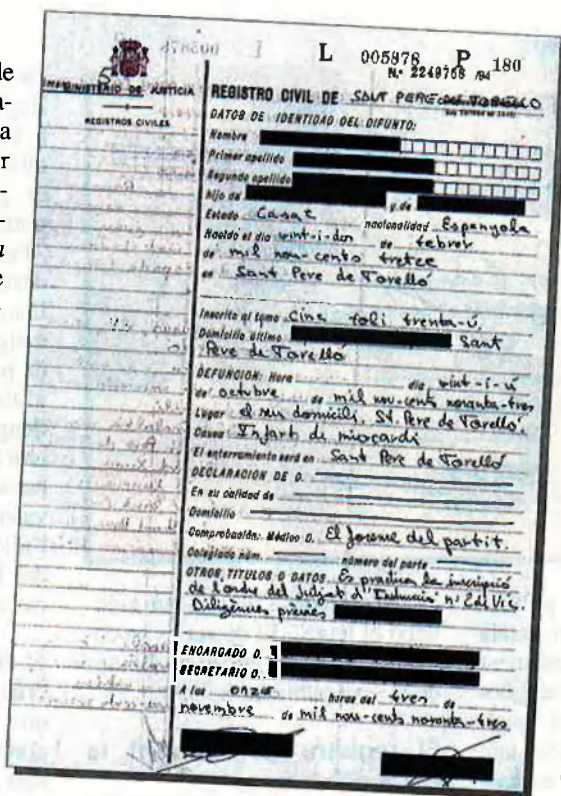 de
a
r
u
e
L 005878 P 180
N.º 2249758 /94
MINISTERIO DE JUSTICIA
REGISTROS CIVILES
REGISTRO CIVIL DE SANT PERE DE TORELLO
DATOS DE IDENTIDAD DEL DIFUNTO:
Nombre
Primer apellido
Segundo apellido
hijo de y de
Estado Casat nacionalidad Espanyola
Nacido el día vint-i-dos de febrer
de mil nou-cents tretze
en Sant Pere de Torelló
Inscrito al tomo Cinc foli trenta-ú.
Domicilio último Sant
Pere de Torelló
DEFUNCION: Hora día vint-i-ú
de octubre de mil nou-cents noranta-tres
Lugar el seu domicili, St. Pere de Torelló.
Causa Infart de miocardi
El enterramiento será en Sant Pere de Torelló
DECLARACION DE D.
En su calidad de
Domicilio
Comprobación: Médico D. El forense del partit.
Colegiado núm. número del parte
OTROS TITULOS O DATOS Es practica la inscripció
de l'ordre del Jutjat d'Instrucció nº 2 de Vic.
Diligències prèvies
ENCARGADO D.
SECRETARIO D.
A las onze horas del tres de
novembre de mil nou-cents noranta-tres